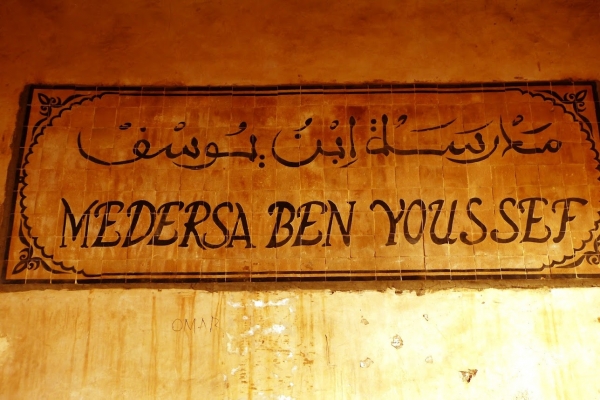 مَدْرَسَةُ اِبْنُ يُوسْفْ
MEDERSA BEN YOUSSEF
OMAR